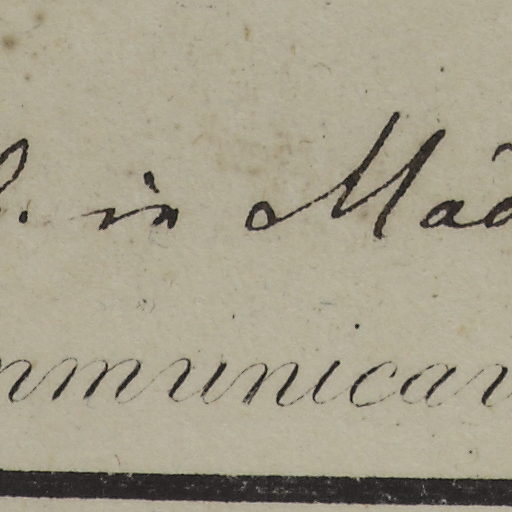 . in Mad
mmunicar